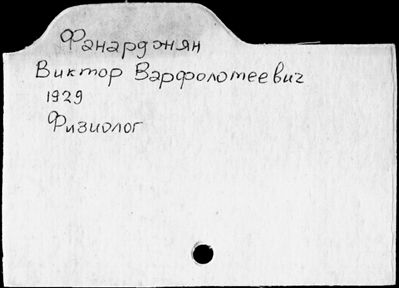 Фанарджян
Виктор Варфоломеевич
1929
Физиолог